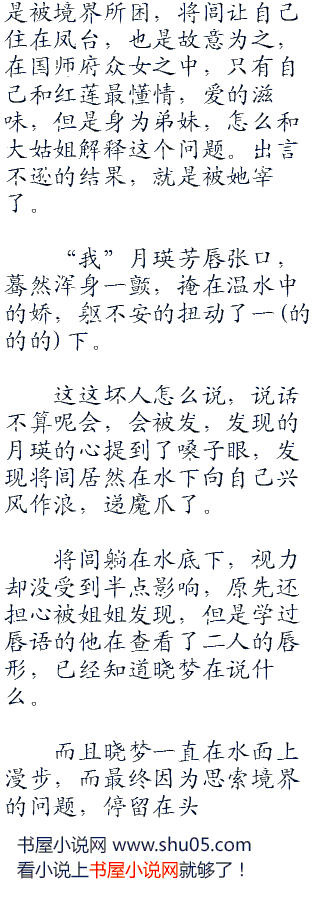 是被境界所困，将闾让自己
住在凤台，也是故意为之，
在国师府众女之中，只有自
己和红莲最懂情，爱的滋
味，但是身为弟妹，怎么和
大姑姐解释这个问题。出言
不逊的结果，就是被她宰
了。
“我”月瑛芳唇张口，
蓦然浑身一颤，掩在温水中
的娇，躯不安的扭动了一(的
的的)下。
这这坏人怎么说，说话
不算呢会，会被发，发现的
月瑛的心提到了嗓子眼，发
现将闾居然在水下向自己兴
风作浪，递魔爪了。
将闾躺在水底下，视力
却没受到半点影响，原先还
担心被姐姐发现，但是学过
唇语的他在查看了二人的唇
形，已经知道晓梦在说什
么。
而且晓梦一直在水面上
漫步，而最终因为思索境界
的问题，停留在头
书屋小说网 www.shu05.com
看小说上书屋小说网就够了！